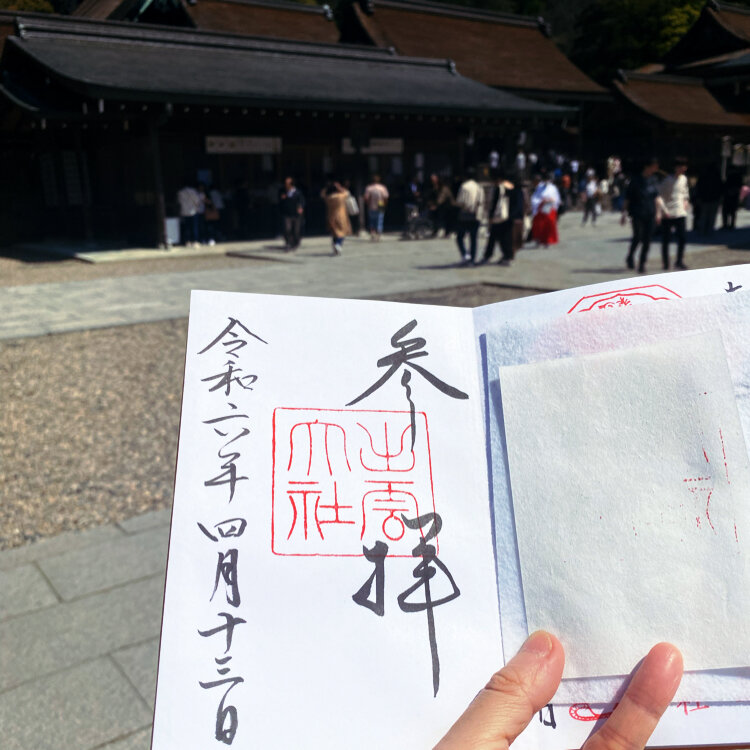 参拝
出雲
大社
令和六年四月十三日
社